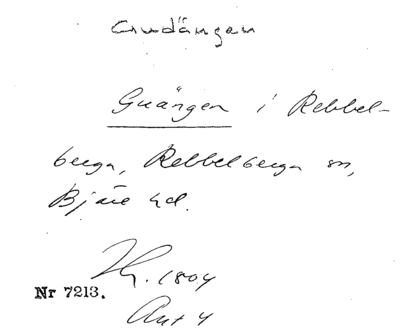 Gudängen
Guängen i Rebbel-
berga, Rebbelberga sn,
Bjäre hd.
Th. 1804
Nr 7213.
Akt 4